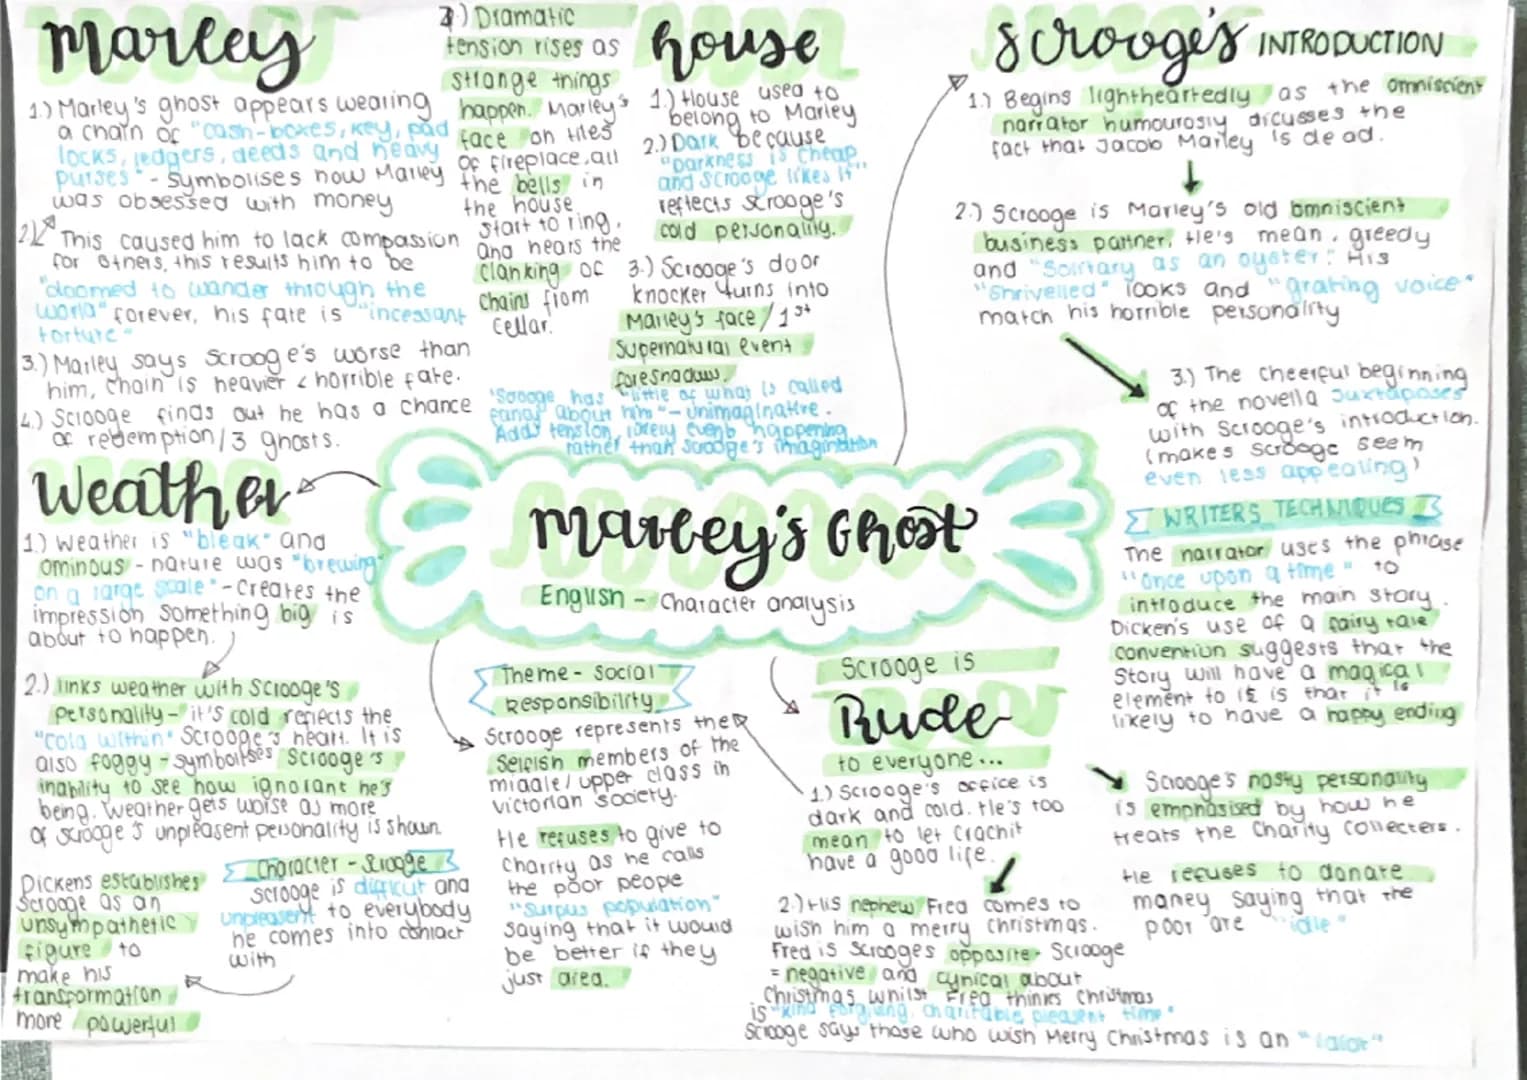 Marley
1.) Marley's ghost appears wearing
a chain of "cash-boxes, key, pad
locks, ledgers, deeds and heavy
purses" - symbolises how Marley
was obsessed with money
2.) This caused him to lack compassion
for others, this results him to be
"doomed to wander through the
world" forever, his fate is "incessant
torture"
3.) Marley says Scrooge's worse than
him, chain is heavier & horrible fate.
4.) Scrooge finds out he has a chance
of redemption/3 ghosts.
) Dramatic
tension rises as
strange things
happen. Marley's
face on tiles
of fireplace, all
the bells in
the house
start to ring,
and hears the
clanking of
chains from
cellar.
house
1.) House used to
belong to Marley
2.) Dark because
"Darkness is cheap,
and Scrooge likes it"
reflects Scrooge's
cold personality.
3.) Scrooge's door
knocker turns into
Marley's face/1st
supernatural event
foreshadows.
"Scrooge has "little of what is called
fancy about him" - unimaginative.
Adds tension, likely events happening
rather than Scrooge's imagination
Scrooge's INTRODUCTION
1.) Begins lightheartedly as the omniscient
narrator humourosly dicusses the
fact that Jacob Marley is dead.
2.) Scrooge is Marley's old omniscient
business partner. He's mean, greedy
and "Solitary as an oyster". His
"Shrivelled" looks and "grating voice"
match his horrible personality
3.) The cheerful beginning
of the novella juxtaposes
with Scrooge's introduction.
(makes Scrooge seem
even less appealing)
WRITERS TECHNIQUES
The narrator uses the phrase
"Once upon a time" to
introduce the main story.
Dicken's use of a fairy tale
convention suggests that the
story will have a magical
element to it is that it is
likely to have a happy ending
Marley's Ghost
English - Character analysis
Weather
1.) Weather is "bleak" and
ominous - nature was "brewing
on a large scale" - Creates the
impression something big is
about to happen.
2.) links weather with Scrooge's
personality - it's cold reflects the
"cold within" Scrooge's heart. It is
also foggy - symbolises Scrooge's
inability to see how ignorant he's
being. Weather gets worse as more
of Scrooge's unpleasent personality is shown
Character - Scrooge
Scrooge is difficult and
unpleasent to everybody
he comes into contact
with
Dickens establishes
Scrooge as an
unsympathetic
figure to
make his
transformation
more powerful
Theme - social
responsibility
Scrooge represents the
Selfish members of the
middle/upper class in
victorian society.
He refuses to give to
Charity as he calls
the poor people
"Surpus population"
saying that it would
be better if they
just died.
Scrooge is
Rude
to everyone...
1.) Scrooge's office is
dark and cold. He's too
mean to let Crachit
have a good life.
2.) His nephew Fred comes to
wish him a merry christmas.
Fred is Scrooges opposite - Scrooge
= negative and cynical about
Christmas whilst Fred thinks Christmas
is "kind forgiving, charitable pleasent time"
Scrooge says those who wish Merry Christmas is an
Scrooge's nasty personality
is emphasised by how he
treats the Charity Collecters.
He refuses to donate
money saying that the
poor are "idle"